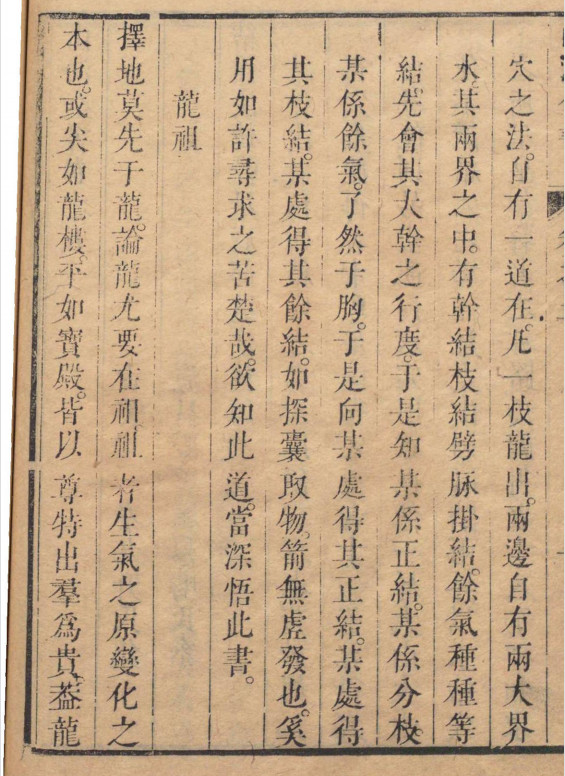 穴之法。自有一道在。凡一枝龍出。兩邊自有兩大界
水。其兩界之中。有幹結枝結劈脉掛結。餘氣種種等
結。先會其大幹之行度。于是知某係正結。某係分枝。
某係餘氣。了然于胸。于是向某處得其正結。某處得
其枝結。某處得其餘結。如探囊取物。箭無虛發也。奚
用如許尋求之苦楚哉。欲知此道。當深悟此書。
龍祖
擇地莫先于龍。論龍尤要在祖。祖者生氣之原變化之
本也。或尖如龍樓。平如寶殿。皆以尊特出羣爲貴。葢龍